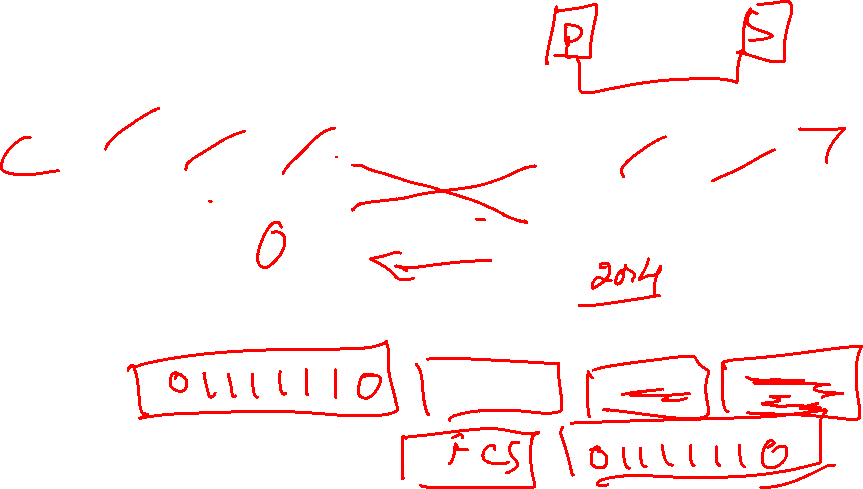 P S
0
2or4
01111110
FCS 01111110